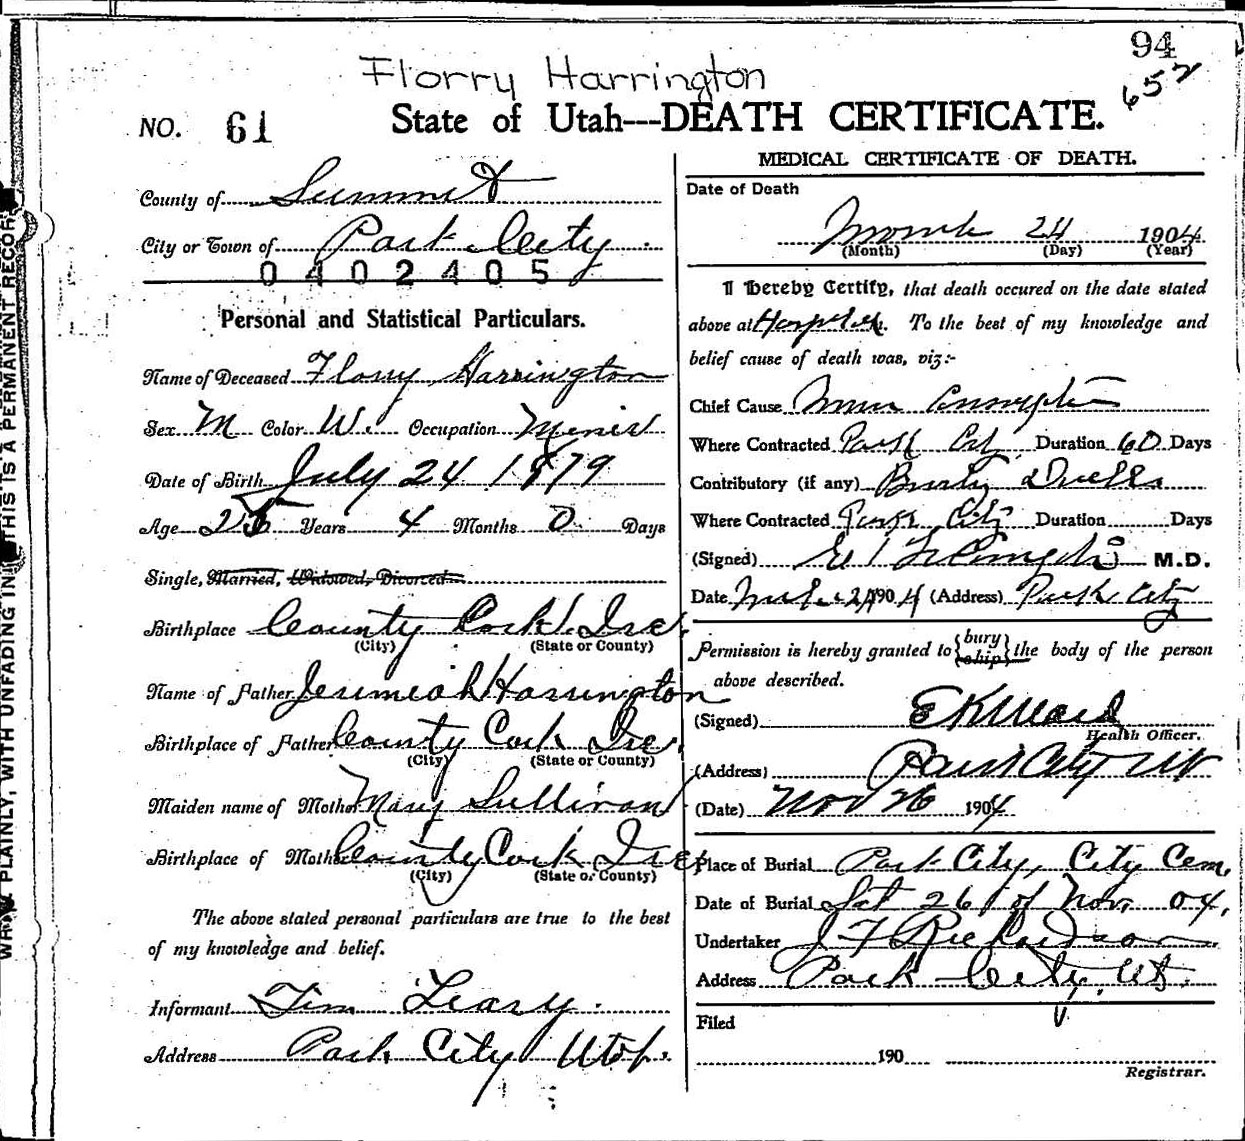 94
652
Florry Harrington
NO. 61 State of Utah---DEATH CERTIFICATE.
County of Summit
City or Town of Park City.
0402405
Personal and Statistical Particulars.
Name of Deceased Florry Harrington
Sex M Color W. Occupation Miner
Date of Birth July 24 1879
Age 25 Years 4 Months 0 Days
Single, Married, Widowed, Divorced
Birthplace County Cork Ire.
(City) (State or County)
Name of Father Jerimiah Harrington
Birthplace of Father County Cork Ire.
(City) (State or County)
Maiden name of Mother Mary Sullivan
Birthplace of Mother County Cork Ire.
(City) (State or County)
The above stated personal particulars are true to the best
of my knowledge and belief.
Informant Tim Leary.
Address Park City Utah.
MEDICAL CERTIFICATE OF DEATH.
Date of Death
24 1904
(Month) (Day) (Year)
I Hereby Certify, that death occured on the date stated
above at To the best of my knowledge and
belief cause of death was, viz:-
Chief Cause
Where Contracted Park City Duration 60 Days
Contributory (if any)
Where Contracted Park City Duration Days
(Signed) M.D.
Date 24 1904 (Address) Park City
Permission is hereby granted to {bury ship} the body of the person
above described.
(Signed) E K Ward
Health Officer.
(Address) Park City Ut
(Date) Nov 26 1904
Place of Burial Park City, City Cem.
Date of Burial Sat 26 of Nov. 04.
Undertaker J T Richardson.
Address Park City, Ut.
Filed
190
Registrar.
WRITE PLAINLY, WITH UNFADING INK THIS IS A PERMANENT RECORD